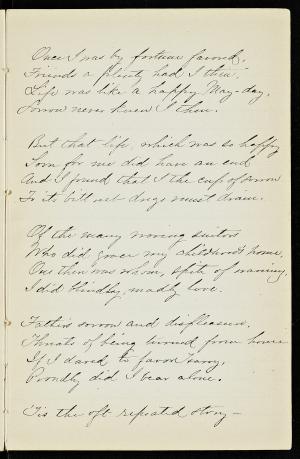 Once I was by fortune favored,
Friends a plenty had I then;
Life was like a happy May-day,
Sorrow never knew I then.
But that life, which was so happy
Soon for me did have an end
And I found that I the cup of sorrow
To its bitterest dregs must drain.
Of the many suitors
Who did my childhood's home,
One there was whom, spite of warning,
I did blindly, madly love.
Father's sorrow and displeasure,
Threats of being turned from home
If I dared to favor Harry,
Proudly did I bear alone.
'Tis the oft repeated story—